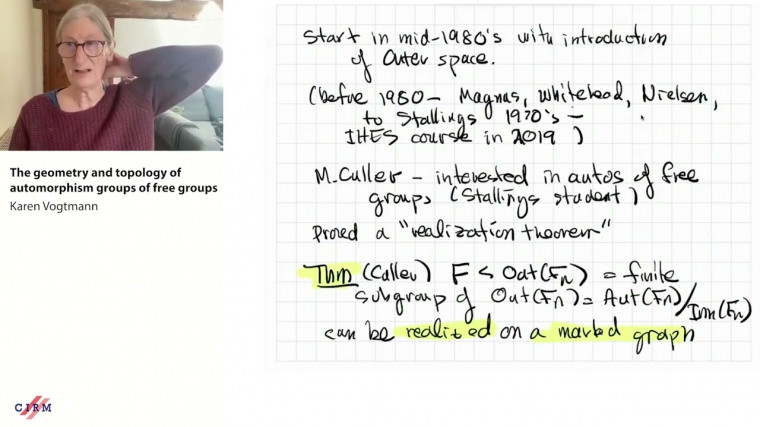 The geometry and topology of
automorphism groups of free groups
Karen Vogtmann
CIRM
Start in mid-1980's with introduction
of Outer space.
(before 1980 - Magnus, Whitehead, Nielsen,
to Stallings 1970's -
IHES course in 2019 )
M. Culler - interested in autos of free
groups (Stallings student)
Proved a "realization theorem"
Thm (Culler) F < Out(Fn) = finite
subgroup of Out(Fn) = Aut(Fn)/Inn(Fn)
can be realized on a marked graph